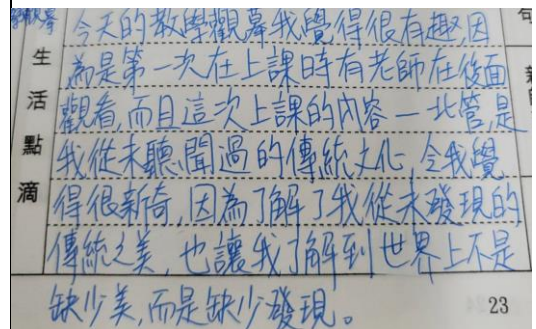 今天的教學觀摹我覺得很有趣,因
為是第一次在上課時有老師在後面
觀看,而且這次上課的內容—北管,是
我從未聽聞過的傳統文化,令我覺
得很新奇,因為了解了我從未發現的
傳統之美,也讓我了解到世界上不是
缺少美,而是缺少發現。
生活點滴
23